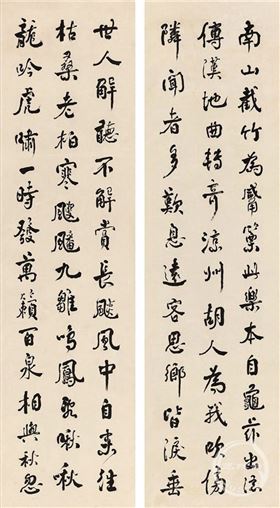 南山截竹為觱篥此樂本自龜茲出流
傳漢地曲轉奇涼州胡人為我吹傍
隣聞者多歎息遠客思鄉皆淚垂
世人解聽不解賞長飇風中自來往
枯桑老柏寒颼飀九雛鳴鳳亂啾啾
龍吟虎嘯一時發萬籟百泉相與秋忽